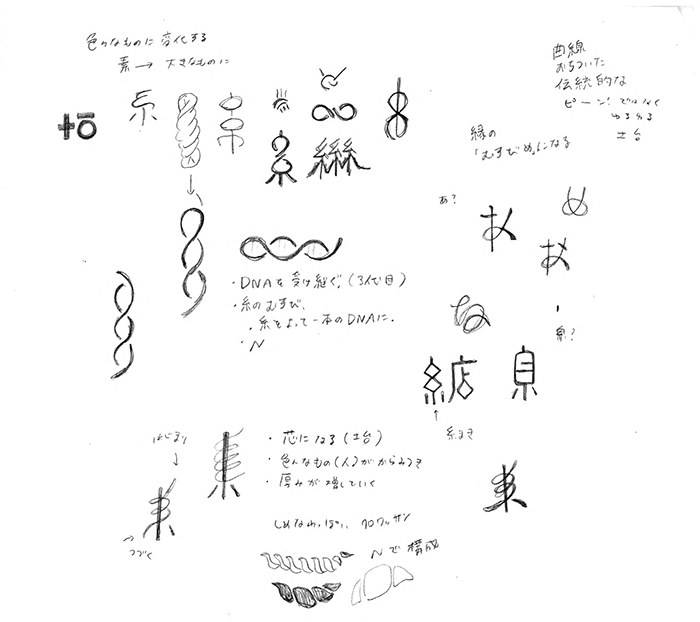 色々なものに変化する
素 → 大きなものに
曲線
おちついた
伝統的な
ピーン!ではなく
ゆるゆる
土台
縁の
「むすびめ」になる
あ?
糸
糸
絲絲
・DNAを受け継ぐ。(3代目)
・糸のむすび、
・糸をよって一本のDNAに。
・N
糸?
はじまり
つづく
・芯になる(土台)
・色んなもの(人)がからみつき
・厚みが増していく
しめなわっぽい、クロワッサン
Nで構成